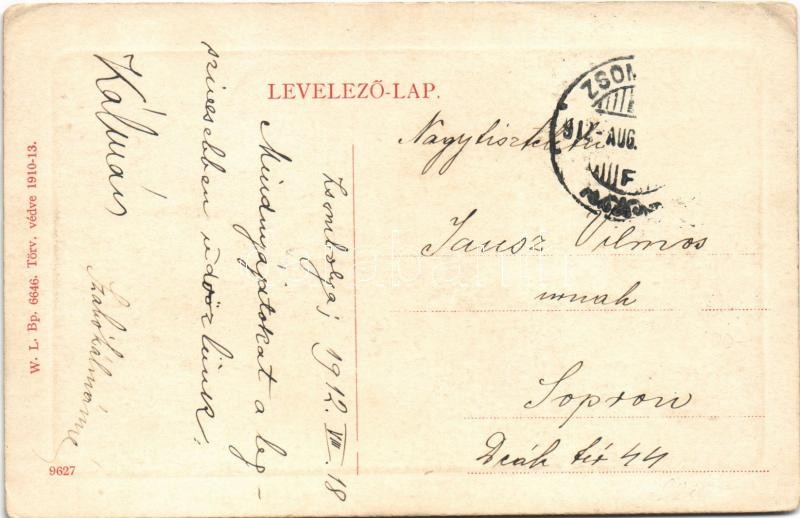 LEVELEZŐ-LAP.
Zsombolya, 1912. VIII. 18
Mindnyájatokat a leg-
szivesebben üdvözlünk.
Kálmán
Szabó Kálmánné
Nagytiszteletü
Jausz Vilmos
urnak
Sopron
Deák tér 44
ZSOM
912 AUG.
F
W. L. Bp. 6646. Törv. védve 1910-13.
9627